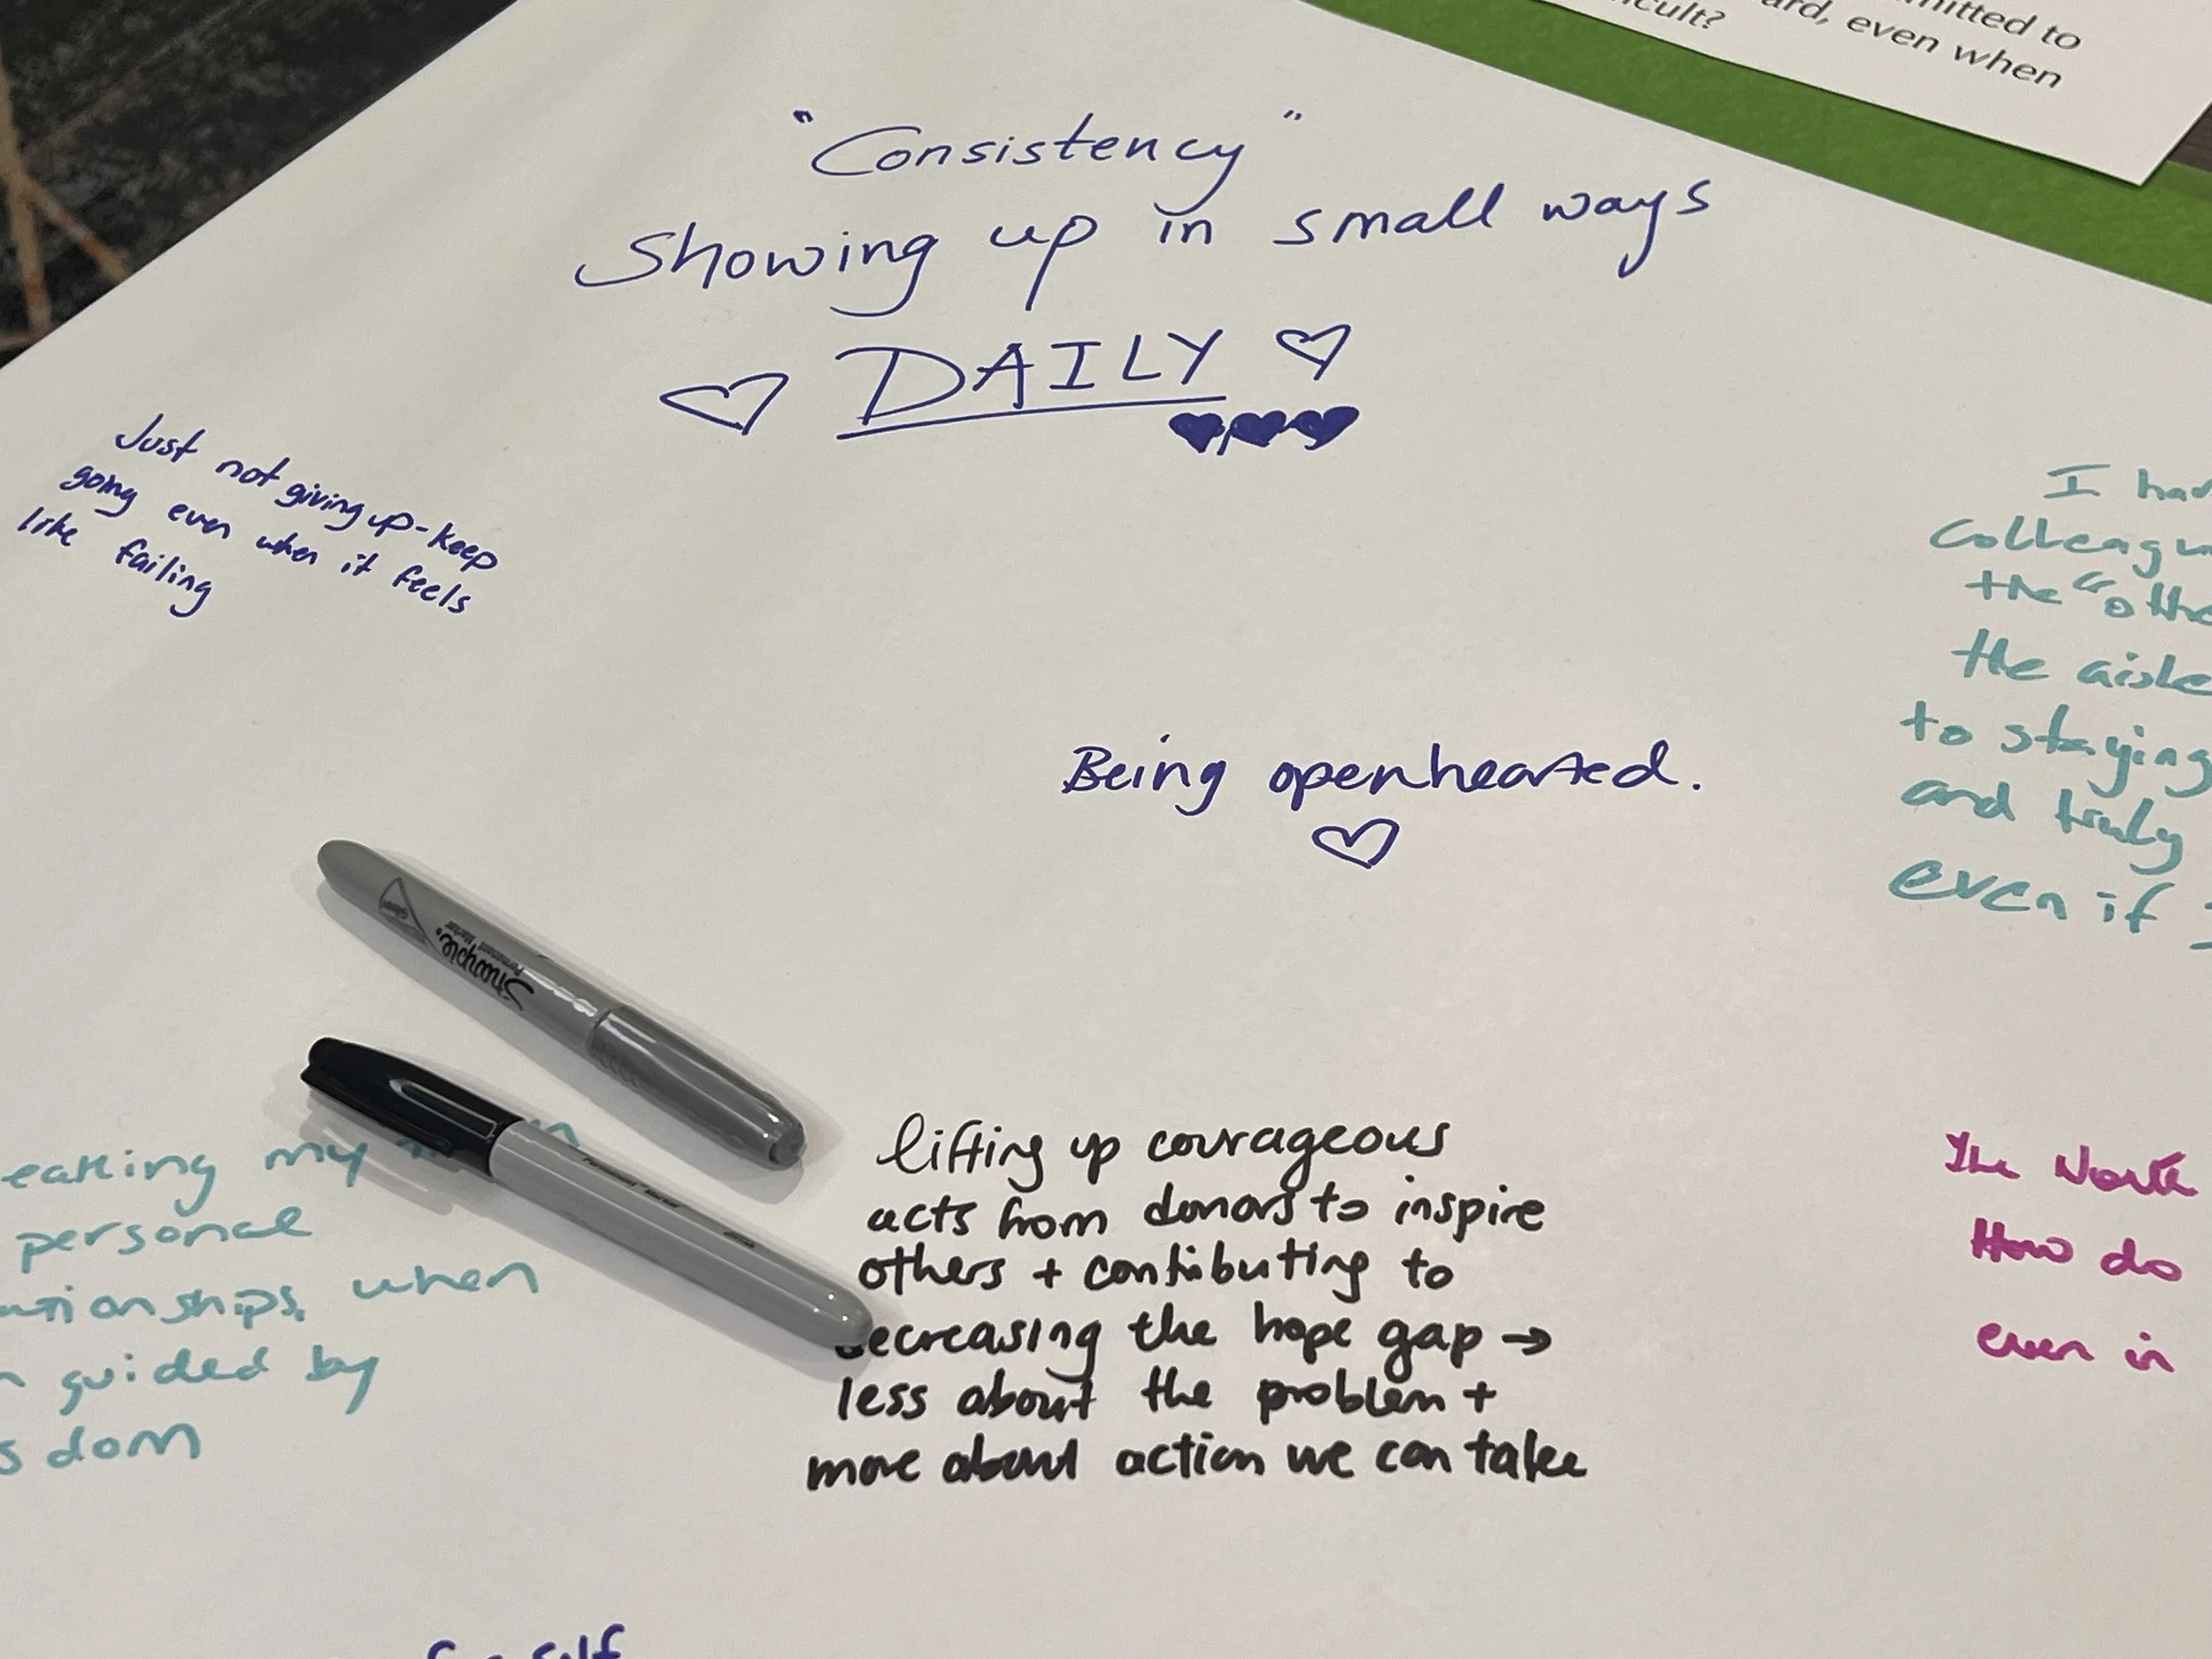 mitted to
ard, even when
icult?
"Consistency"
Showing up in small ways
DAILY
Just not giving up - keep
going even when it feels
like failing
I hav
Colleagu
the "othe
the aisle
to staying
and truly
even if I
Being openhearted.
Sharpie
Permanent Marker
eaking my
personal
ationships, when
n guided by
sdom
lifting up courageous
acts from donors to inspire
others + contributing to
decreasing the hope gap →
less about the problem +
more about action we can take
The North
How do
even in
self